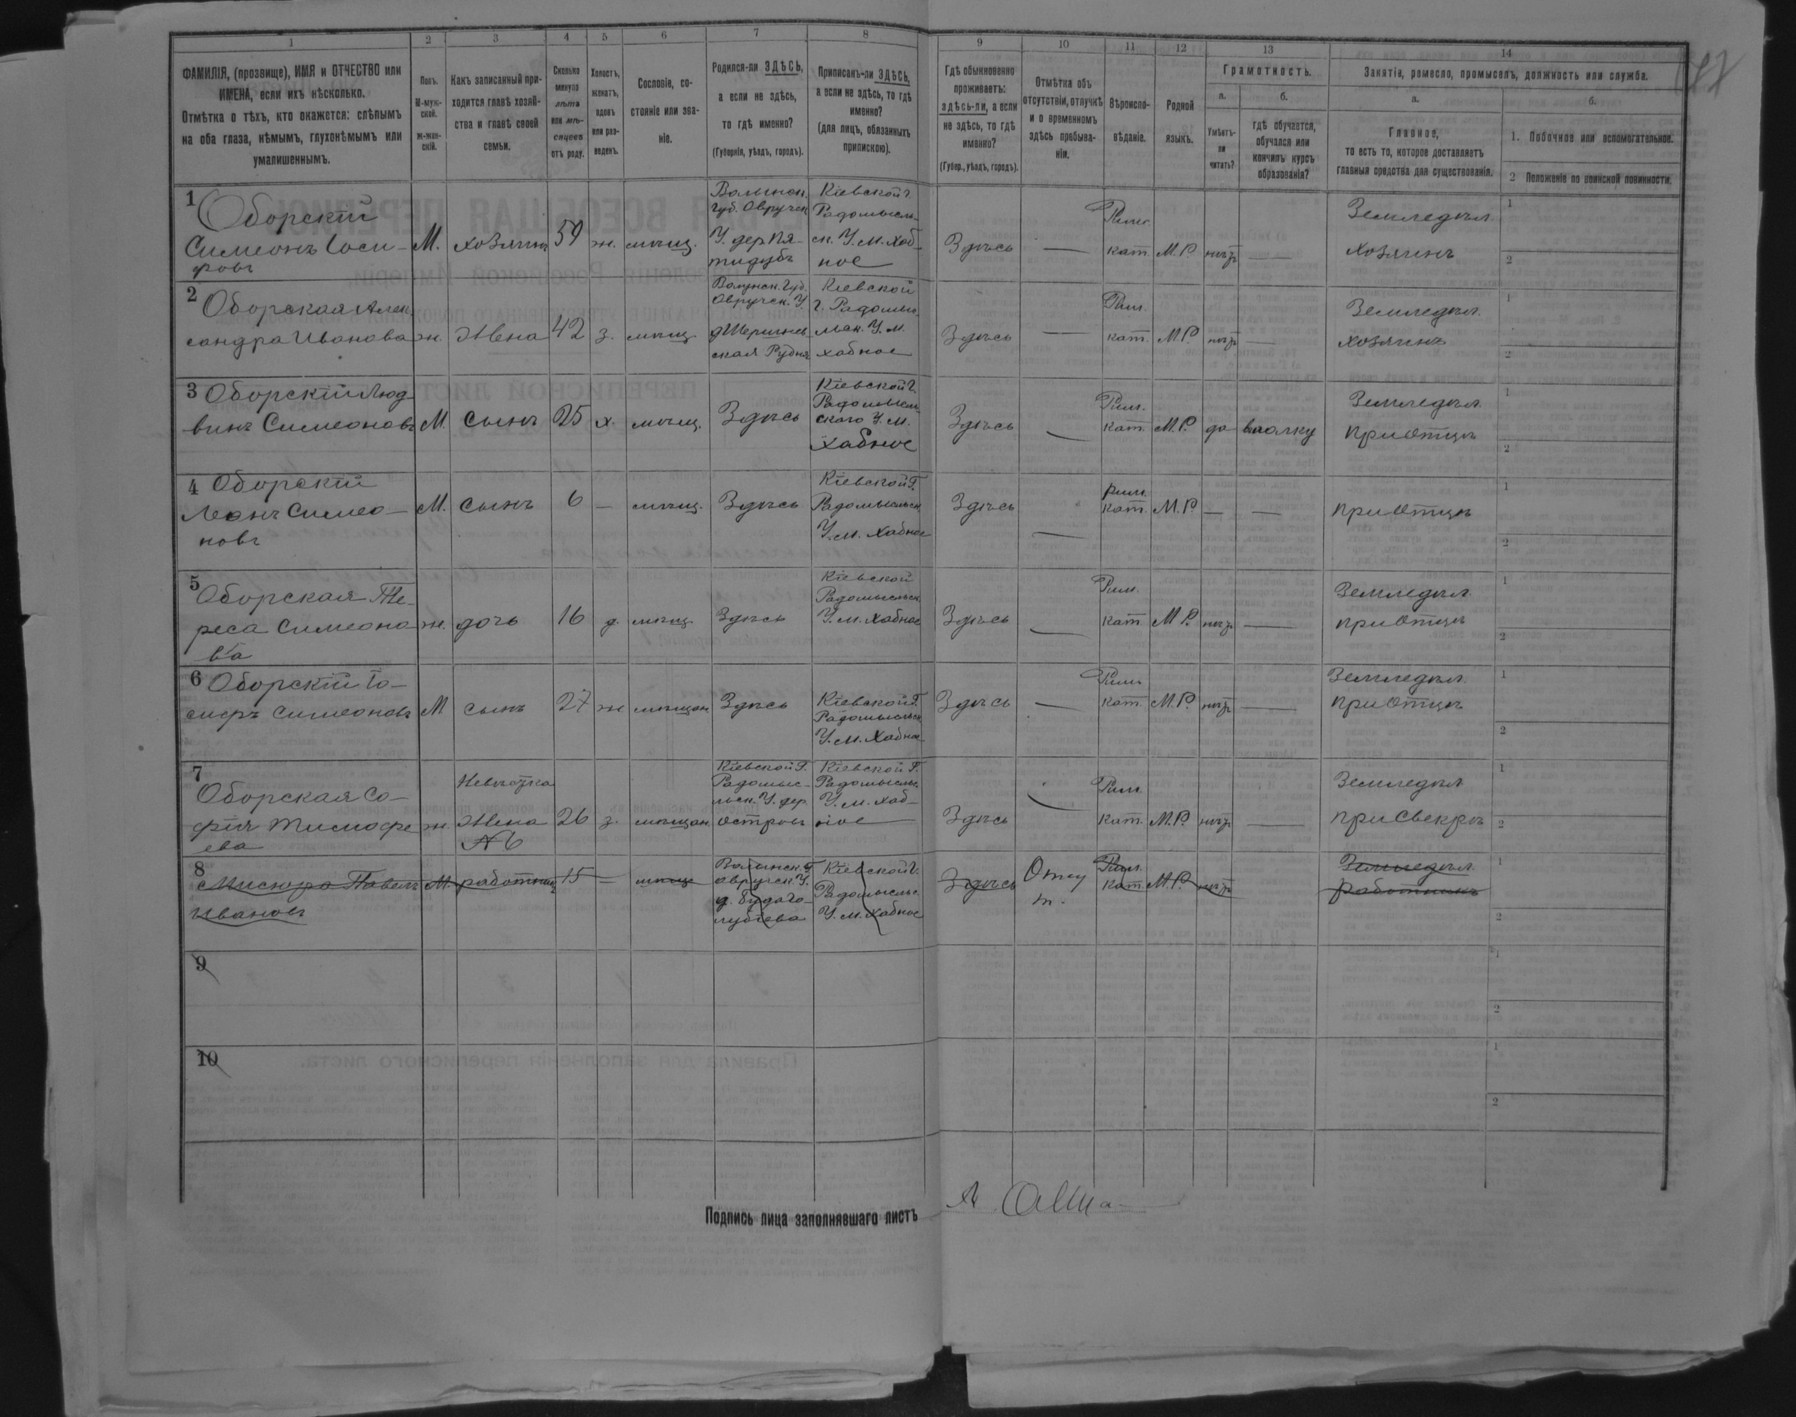 1 2 3 4 5 6 7 8 9 10 11 12 13 14
ФАМИЛІЯ, (прозвище), ИМЯ и ОТЧЕСТВО или
ИМЕНА, если ихъ нѣсколько.
Отмѣтка о тѣхъ, кто окажется: слѣпымъ
на оба глаза, нѣмымъ, глухонѣмымъ или
умалишеннымъ.
Полъ.
М-муж-
ской.
Ж-жен-
скій.
Какъ записанный при-
ходится главѣ хозяй-
ства и главѣ своей
семьи.
Сколько
минуло
лѣтъ
или мѣ-
сяцевъ
отъ роду.
Холостъ,
женатъ,
вдовъ
или раз-
веденъ.
Сословіе, со-
стояніе или зва-
ніе.
Родился-ли ЗДѢСЬ,
а если не здѣсь,
то гдѣ именно?
(Губернія, уѣздъ, городъ).
Приписанъ-ли ЗДѢСЬ,
а если не здѣсь, то гдѣ
именно?
(для лицъ, обязанныхъ
припискою).
Гдѣ обыкновенно
проживаетъ:
здѣсь-ли, а если
не здѣсь, то гдѣ
именно?
(Губер., уѣздъ, городъ).
Отмѣтка объ
отсутствіи, отлучкѣ
и о временномъ
здѣсь пребыва-
ніи.
Вѣроиспо-
вѣданіе.
Родной
языкъ.
Грамотность.
а.
Умѣетъ-
ли
читать?
б.
гдѣ обучается,
обучался или
кончилъ курсъ
образованія?
Занятіе, ремесло, промыселъ, должность или служба.
а.
Главное,
то есть то, которое доставляетъ
главныя средства для существованія.
б.
1. Побочное или вспомогательное.
2 Положеніе по воинской повинности.
1
Оборскій
Симеонъ Іоси-
фовъ
М.
хозяинъ
59
ж.
мѣщ.
Волынск.
Губ. Овручск
У. дер Пя-
тидубъ
Кіевской г.
Радомысл-
ск. У. м. Хаб-
ное
Здѣсь
—
Рим.
кат.
М. Р.
—
Земледѣл.
хозяинъ
1
2
2
Оборская Алек
сандра Иванова
ж.
Жена
42
з.
мѣщ.
Волынск. Губ.
Овручск. У.
ская Рудня
Кіевской
г. Радомы
У. м.
хабное
Здѣсь
—
Рим.
кат.
М. Р.
—
Земледѣл.
хозяинъ
1
2
3 Оборскій Люд-
викъ Симеоновъ
М.
сынъ
25
х.
мѣщ.
Здѣсь
Кіевской г.
Радомысль
ского У. м.
Хабное
Здѣсь
—
Рим.
кат.
М. Р.
да
Земледѣл.
при Отцѣ
1
2
4 Оборскій
Леонъ Симео-
новъ
М.
сынъ
6
—
мѣщ.
Здѣсь
Кіевской Г.
Радомысльск
У. м. Хабное
Здѣсь
—
Рим.
кат.
М. Р.
—
—
при Отцѣ
1
2
5
Оборская Те-
реса Симеоно
ва
ж.
дочь
16
д.
мѣщ.
Здѣсь
Кіевской
Радомысльск
У. м. Хабное
Здѣсь
—
Рим.
кат
М Р.
—
Земледѣл
при Отцѣ
1
2
6 Оборскій Іо-
сифъ Симеоновъ
М
сынъ
27
ж
мѣщан
Здѣсь
Кіевской Г.
Радомысльск
У. м. Хабное
Здѣсь
—
Рим.
кат.
М. Р.
—
Земледѣл.
при Отцѣ
1
2
7
Оборская Со-
фія Тимофе
ева
ж.
Невѣстка
Жена
№6
26
з.
мѣщан
Кіевской Г.
Радомыс-
льск. У. дер.
Островъ
Кіевской Г.
Радомысльс
У. м. хаб-
ное
Здѣсь
—
Рим.
кат.
М. Р.
—
Земледѣл
при Свекрѣ
1
2
8
Мисюра Павелъ
Ивановъ
М.
работникъ
15
—
мѣщ
Волынск. Г
Овручск. У.
Кіевской г.
Радомысльс
У. м. Хабное
Здѣсь
Рим.
кат.
М. Р.
Земледѣл.
работникъ
1
2
9
1
2
10
1
2
Подпись лица заполнявшаго листъ